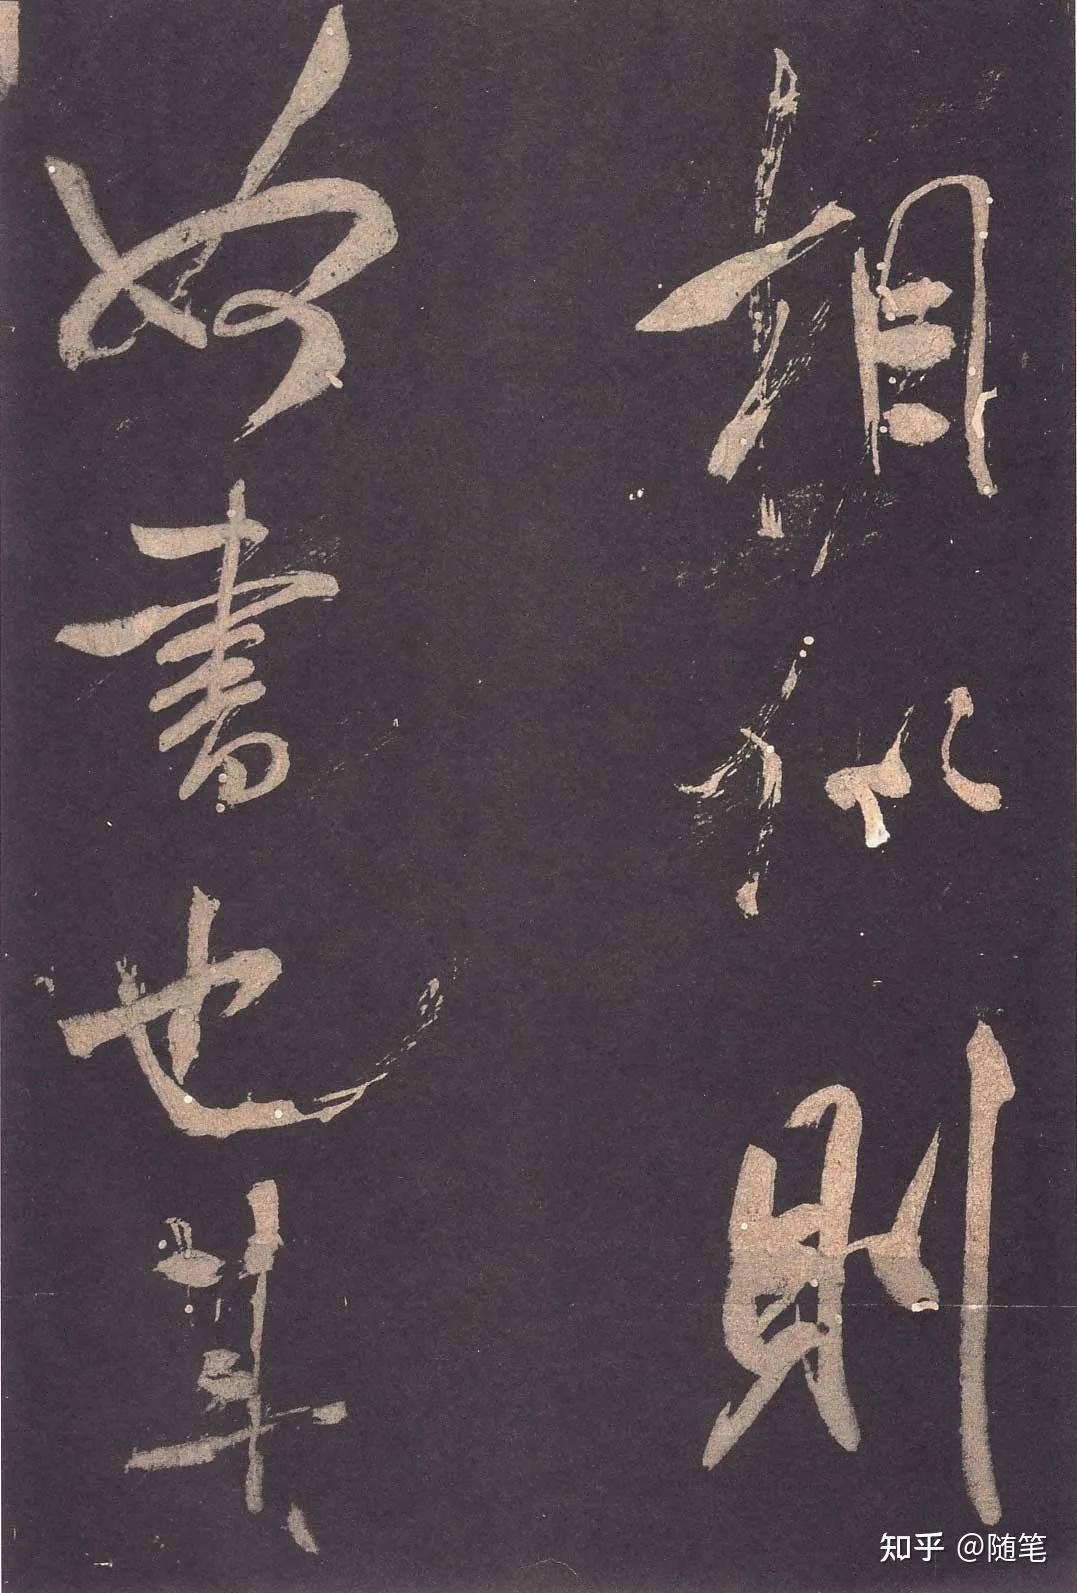 相似則
奴書也其
知乎 @随笔